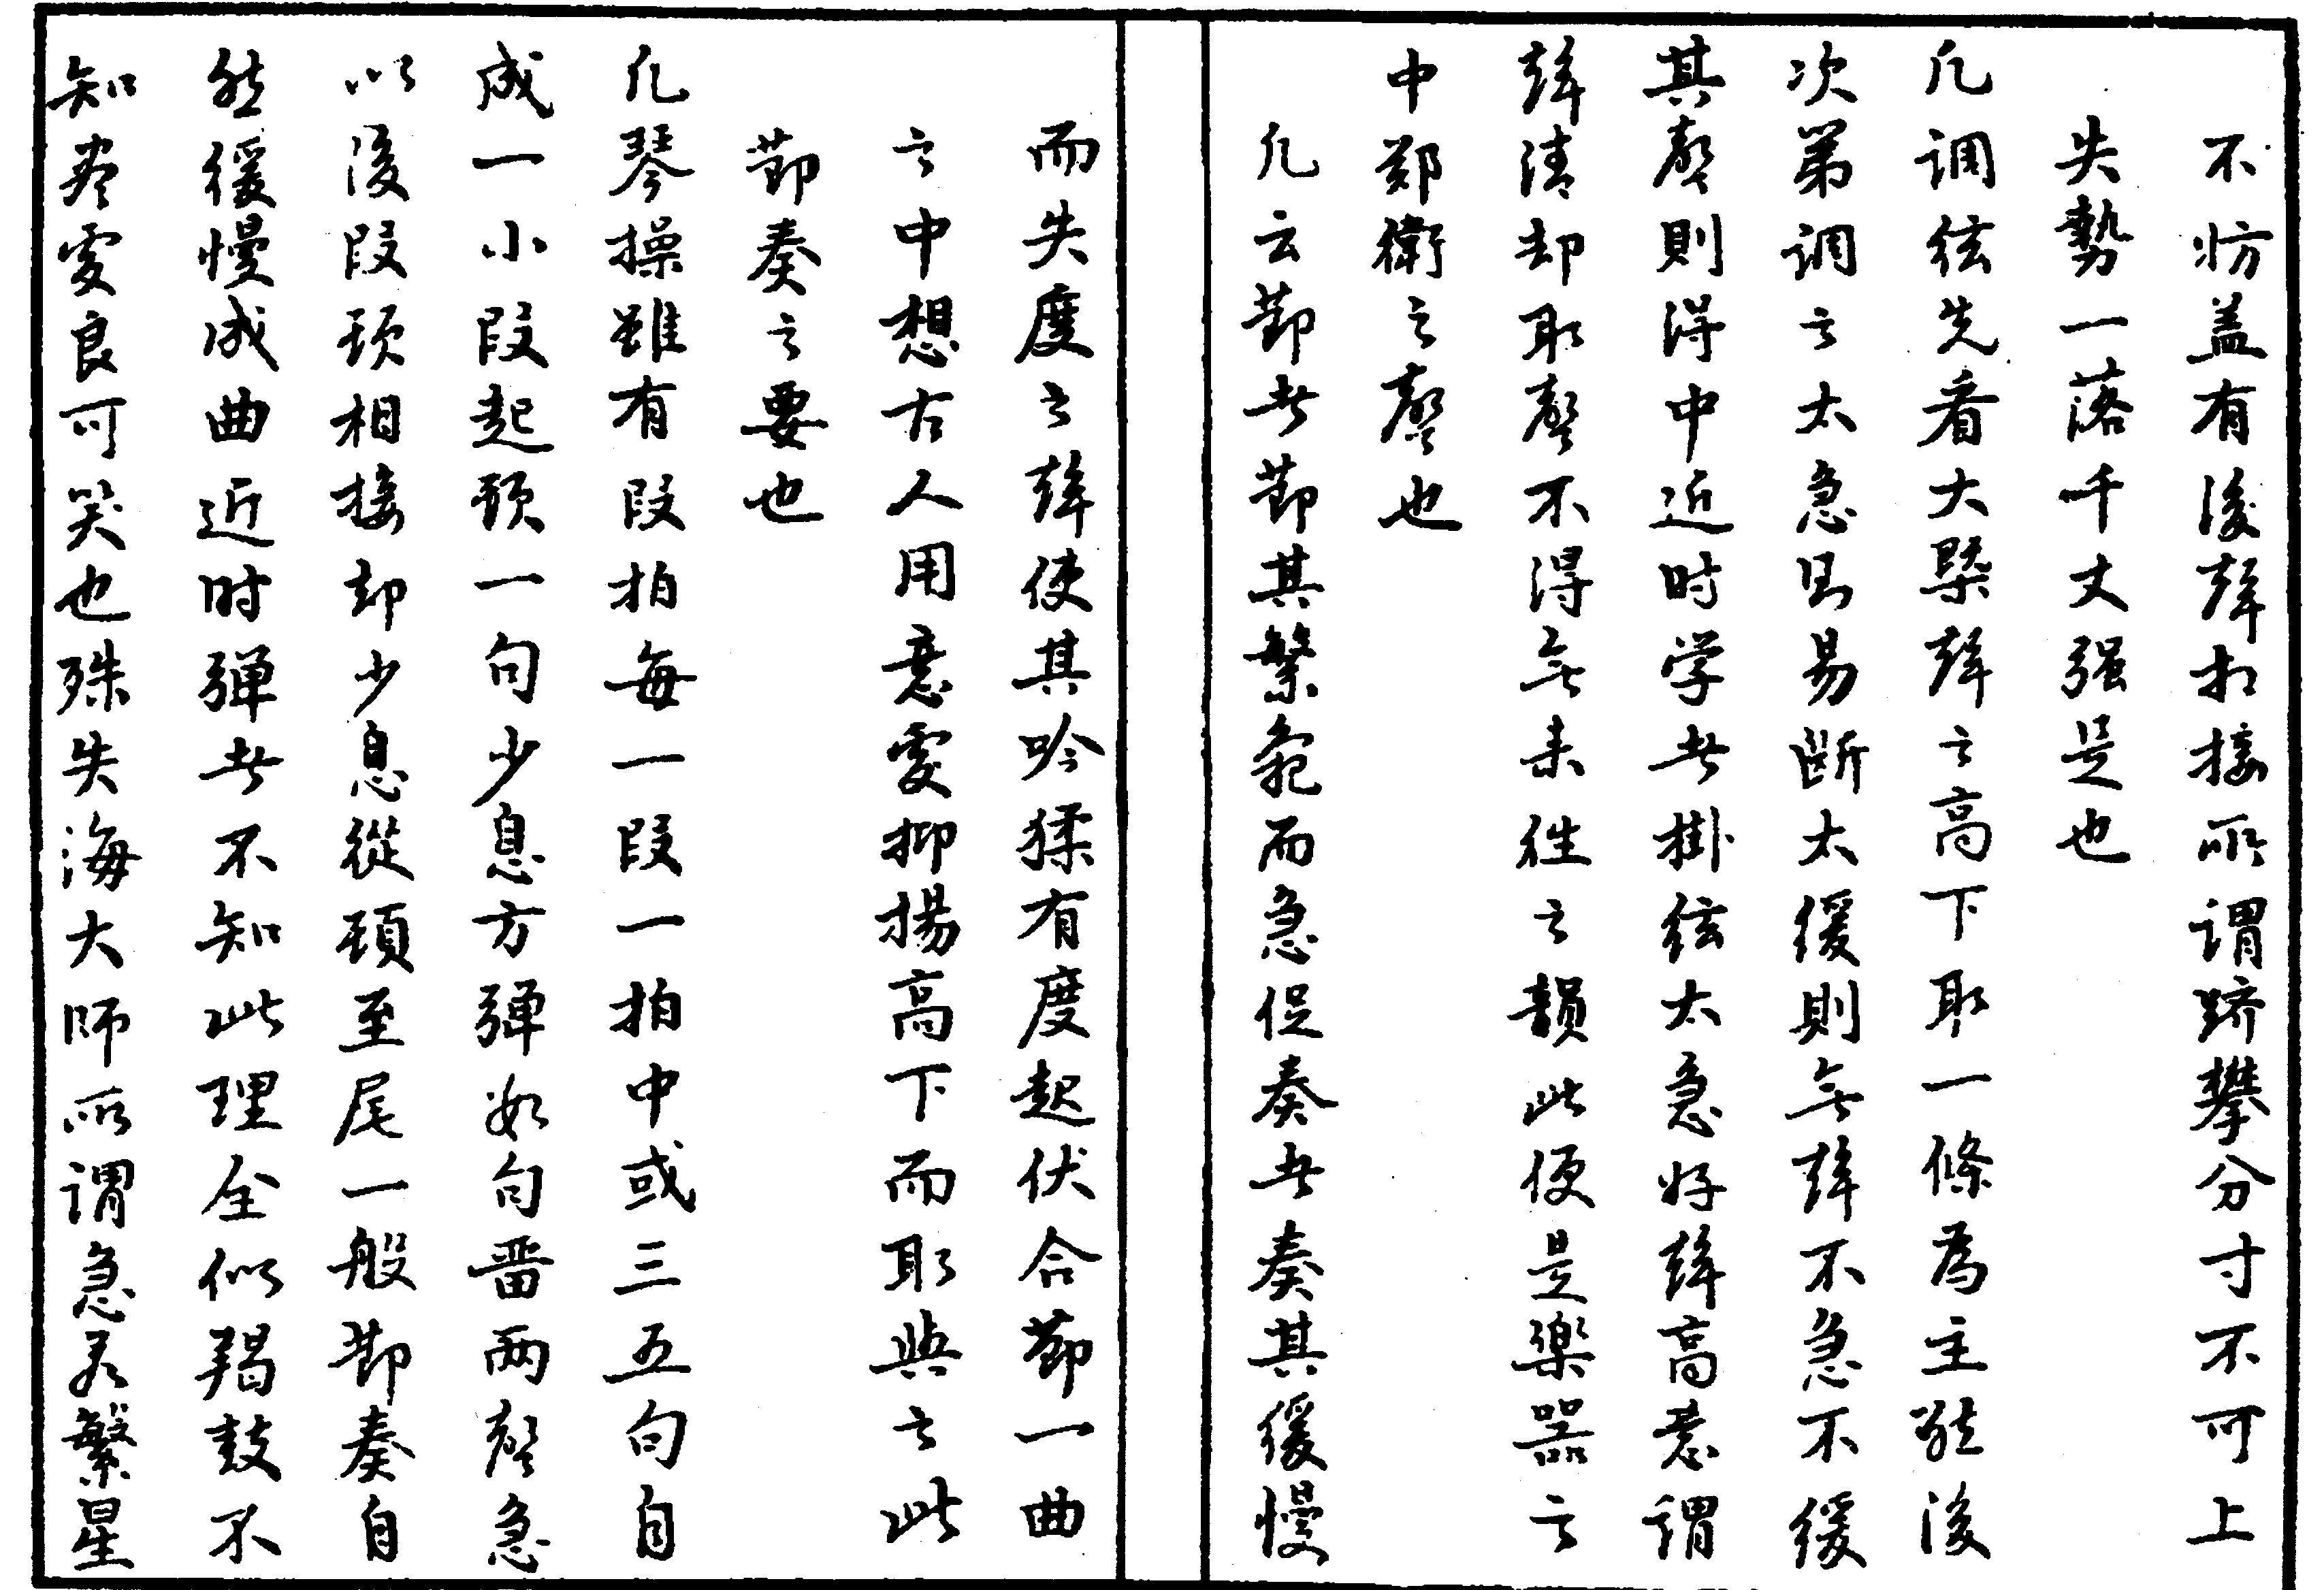 不妨盖有後聲相接所谓跻攀分寸不可上
失勢一落千丈强是也
凡调絃先看大槩聲之高下取一條為主然後
次第调之太急則易断太缓則無聲不急不缓
其聲則得中近时学者掛絃太急好聲高意谓
聲清却取聲不得無来往之韻此便是樂器之
中郑衛之聲也
凡云節者節其繁亂而急促奏者奏其缓慢
而失度之聲使其吟猱有度起伏合節一曲
之中想古人用意處抑揚高下而取與之此
節奏之要也
凡琴操雖有段拍每一段一拍中或三五句自
成一小段起頭一句少息方弹如句番两聲急
以後段頭相接却少息從頭至尾一般節奏自
然缓慢成曲近时弹者不知此理全似羯鼓不
知来處良可笑也殊失海大师所谓急若繁星